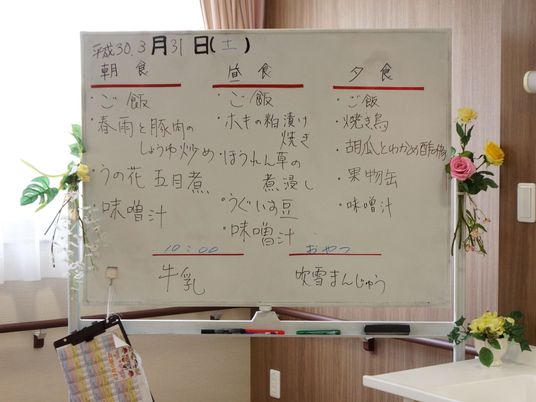 平成30. 3月31日(土)
朝食
・ご飯
・春雨と豚肉の
しょうゆ炒め
・うの花五目煮
・味噌汁
昼食
・ご飯
・ホキの粕漬け
焼き
・ほうれん草の
煮浸し
・うぐいす豆
・味噌汁
夕食
・ご飯
・焼き鳥
・胡瓜とわかめ酢の物
・果物缶
・味噌汁
10:00
牛乳
おやつ
吹雪まんじゅう